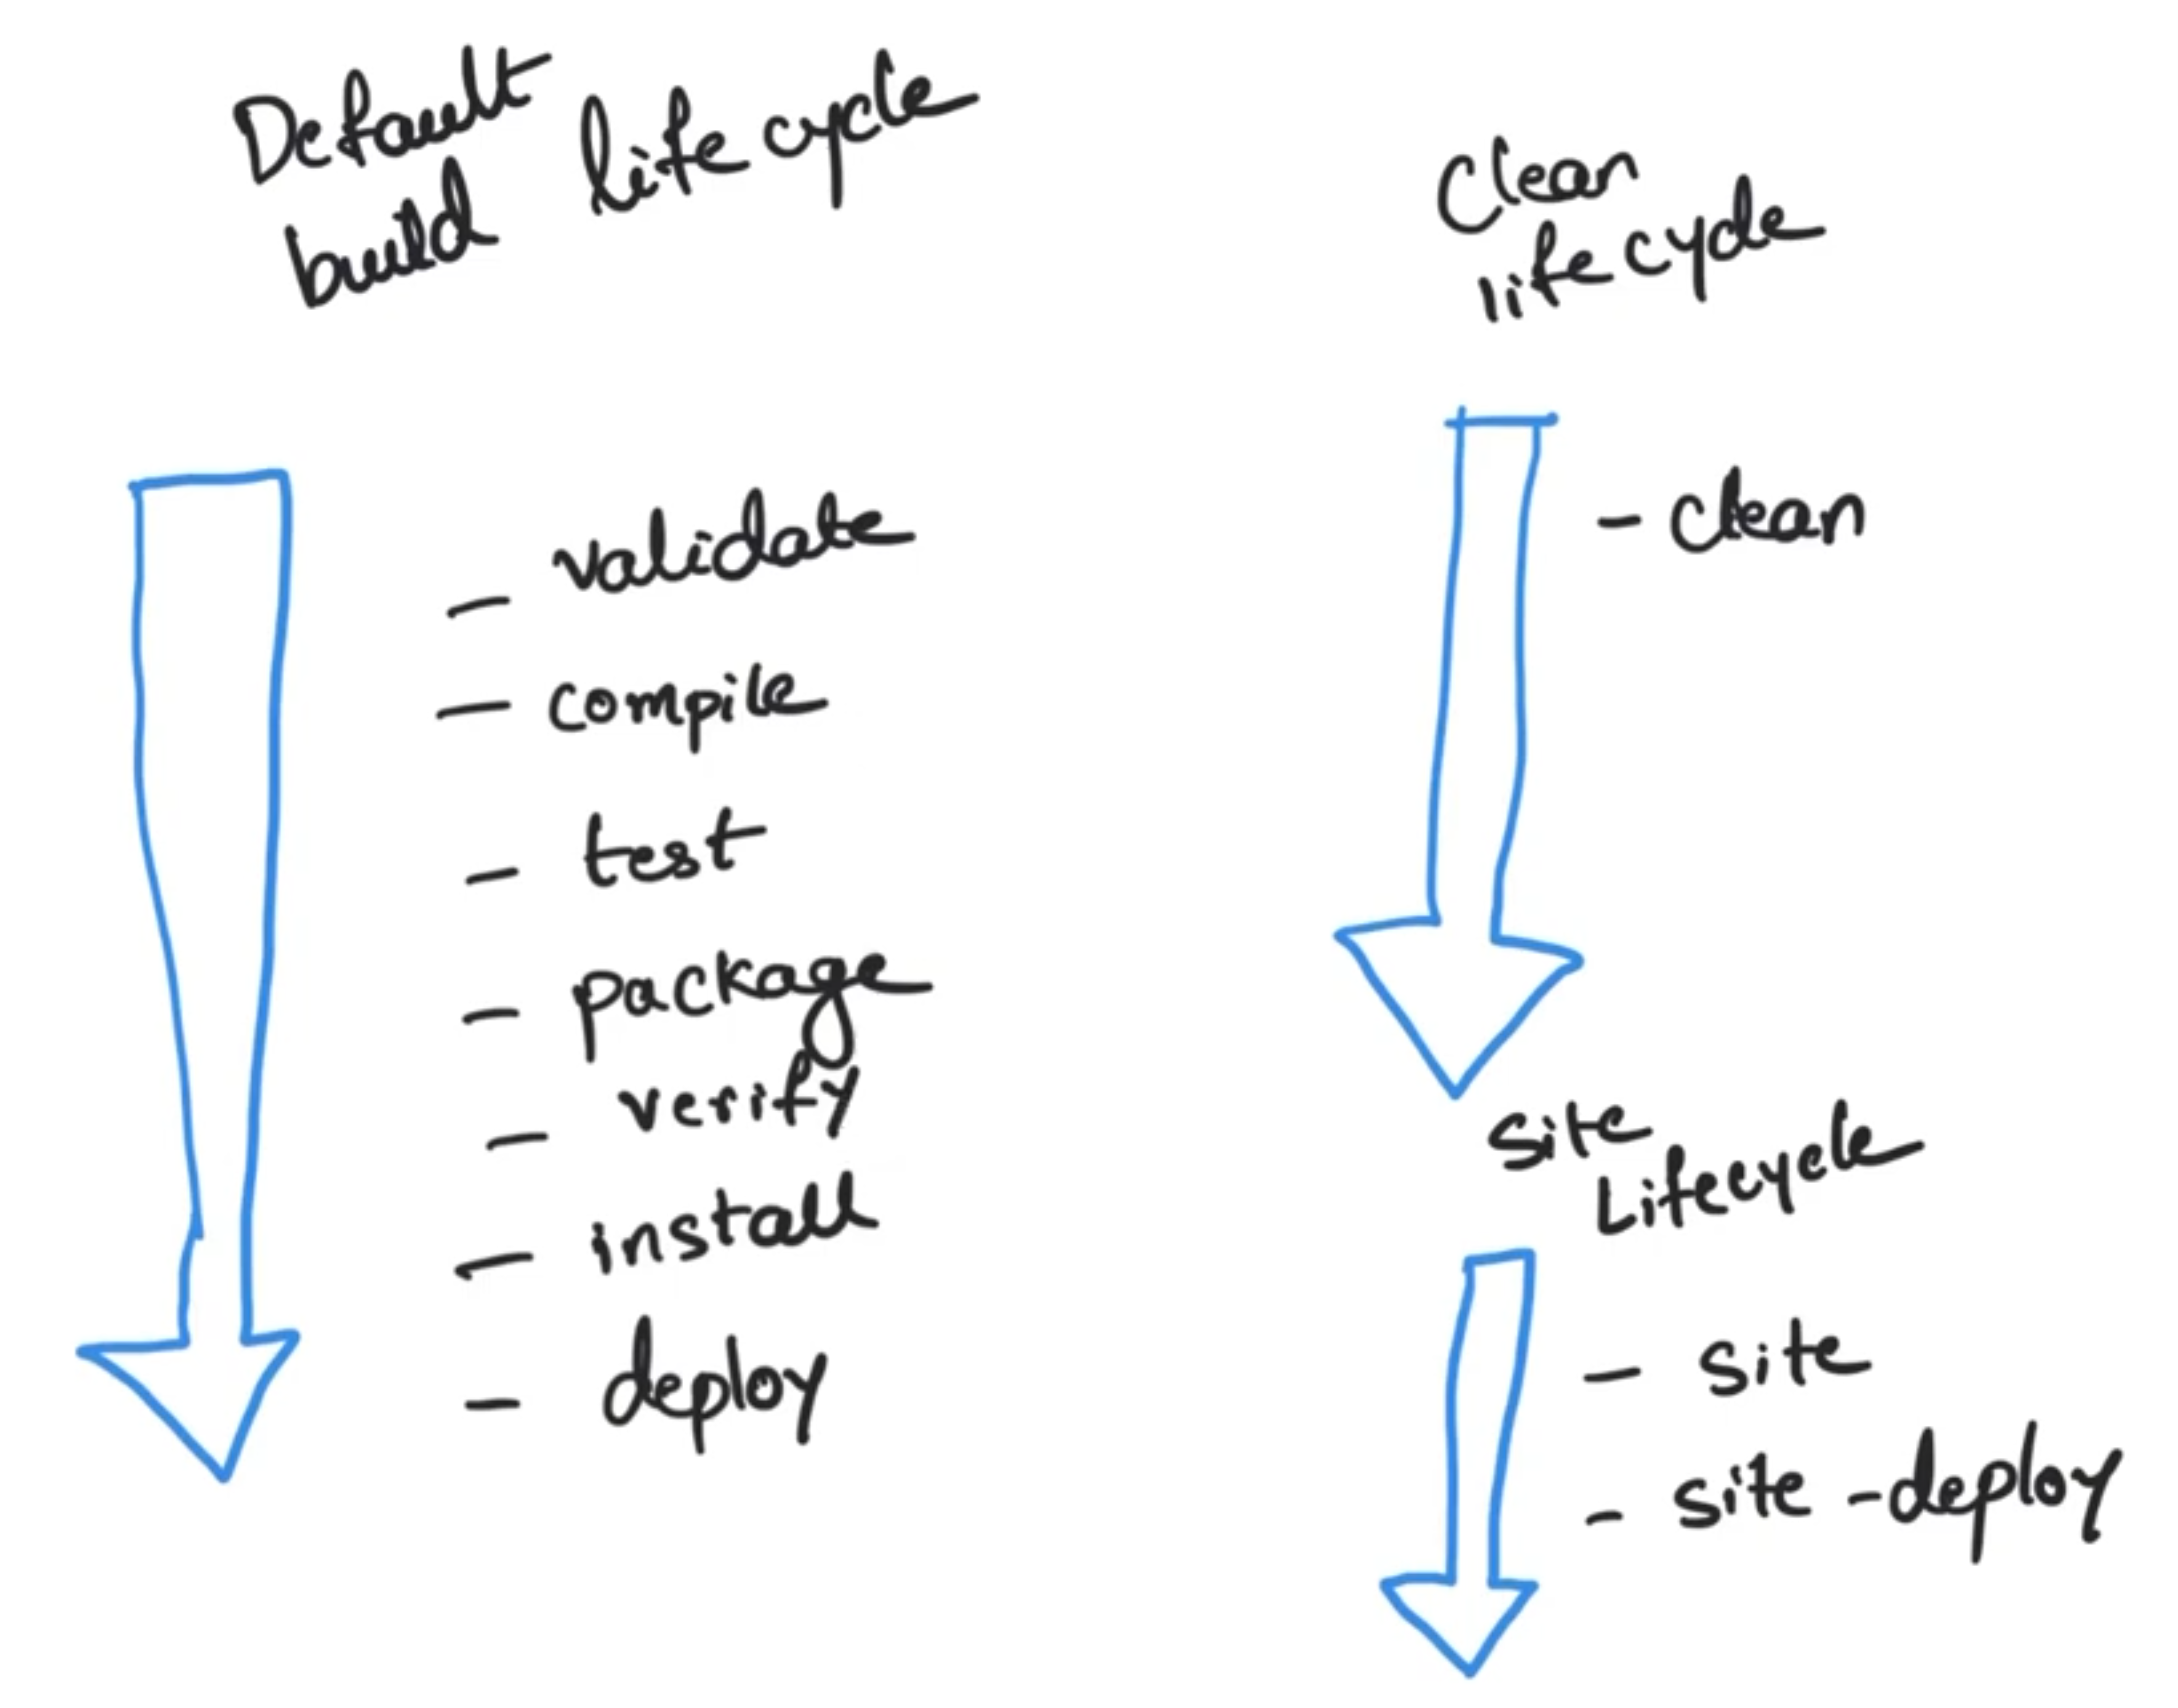 Default life cycle
build
- validate
- compile
- test
- package
- verify
- install
- deploy
Clean
life cycle
- clean
Site
Lifecycle
- site
- site -deploy